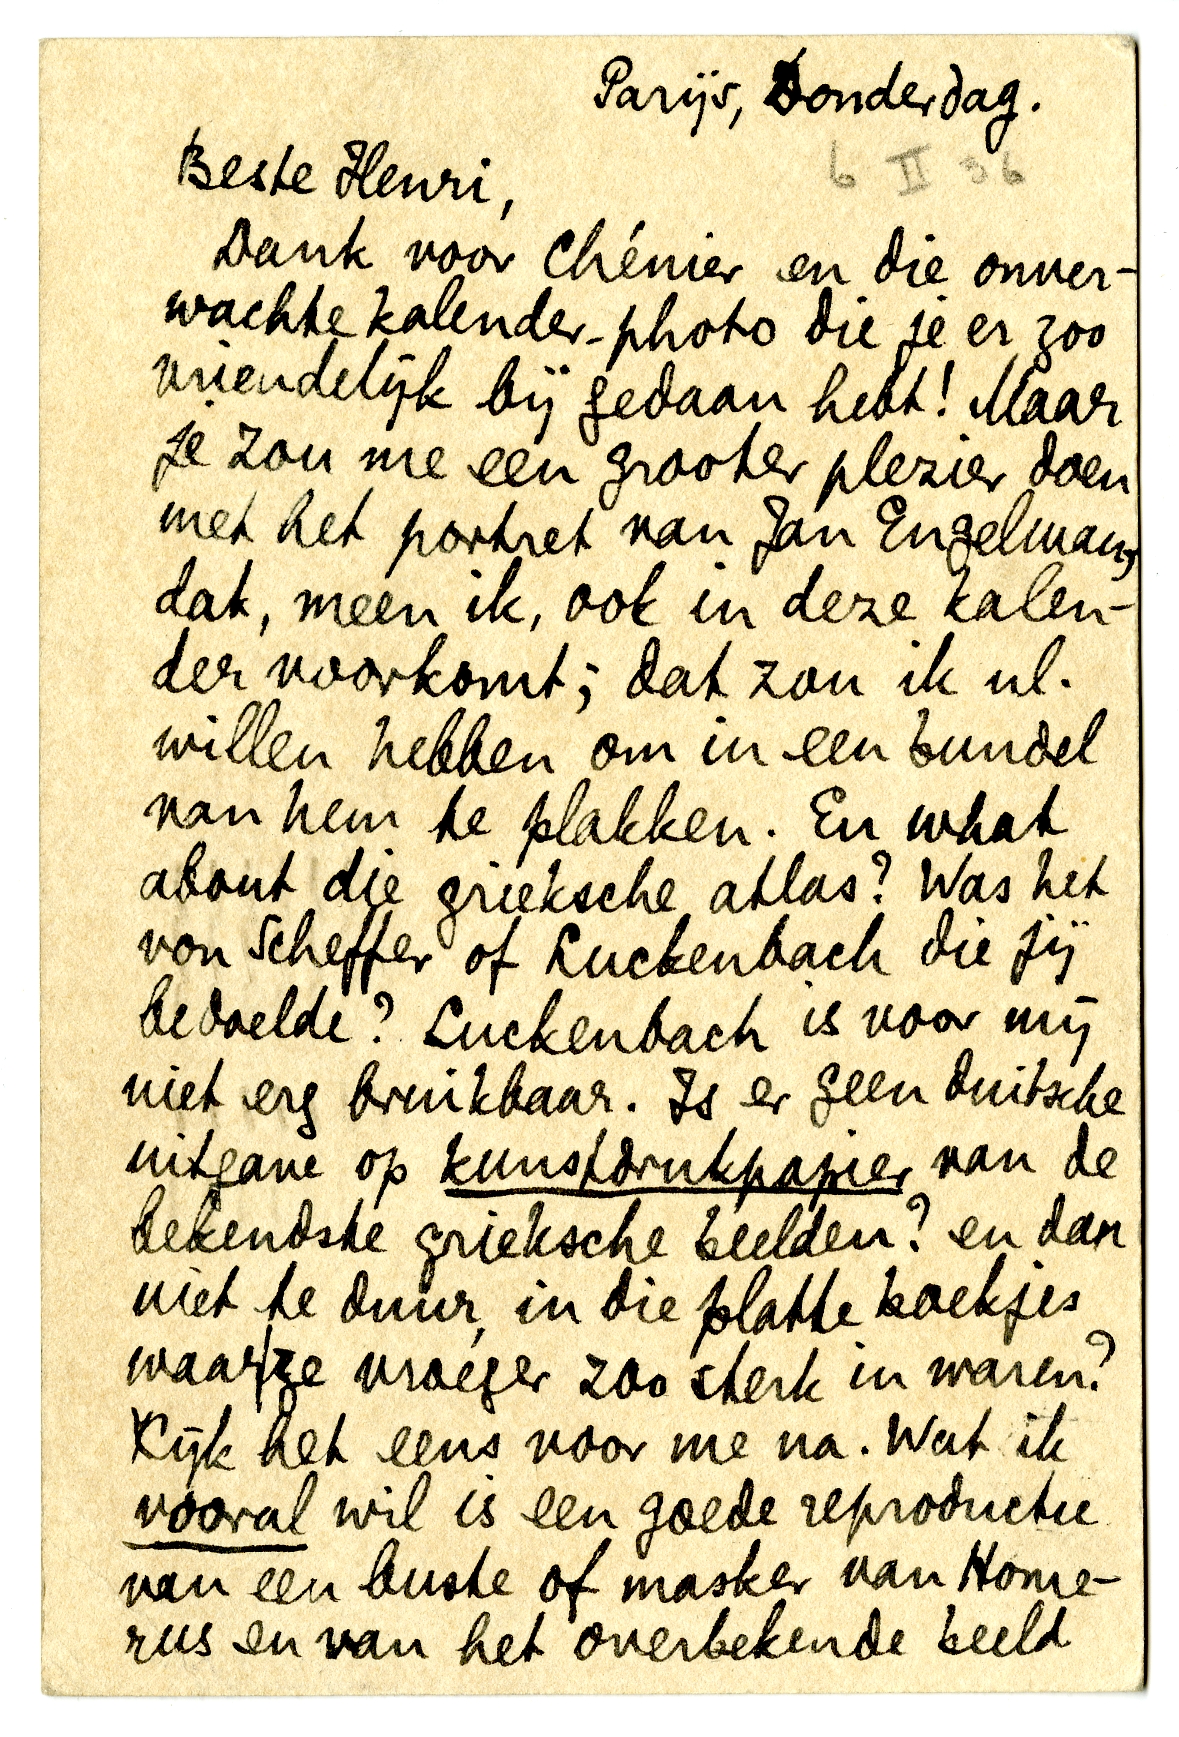 Parijs, Donderdag.
6 II 36
Beste Henri,
Dank voor Chénier en die onver-
wachte kalender-photo die je er zoo
vriendelijk bij gedaan hebt! Maar
je zou me een grooter plezier doen
met het portret van Jan Engelman,
dat, meen ik, ook in deze kalen-
der voorkomt; dat zou ik nl.
willen hebben om in een bundel
van hem te plakken. En what
about die grieksche atlas? Was het
von Scheffer of Luckenbach die jij
bedoelde? Luckenbach is voor mij
niet erg bruikbaar. Is er geen duitsche
uitgave op kunstdrukpapier van de
bekendste grieksche beelden? en dan
niet te duur, in die platte boekjes
waar ze vroeger zoo sterk in waren?
Kijk het eens voor me na. Wat ik
vooral wil is een goede reproductie
van een buste of masker van Home-
rus en van het overbekende beeld